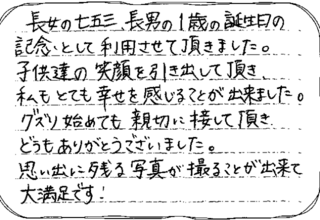 長女の七五三、長男の1歳の誕生日の
記念として利用させて頂きました。
子供達の笑顔を引き出して頂き、
私もとても幸せを感じることが出来ました。
グズり始めても親切に接して頂き
どうもありがとうございました。
思い出に残る写真が撮ることが出来て
大満足です!